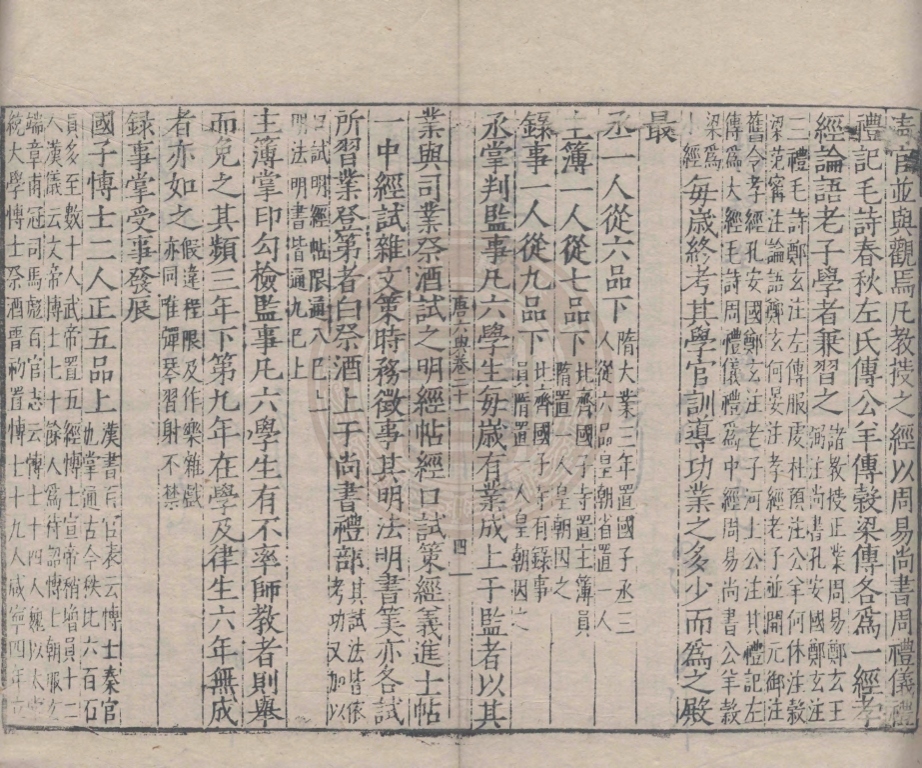 清官並與觀焉凡教授之經以周易尚書周禮儀禮
禮記毛詩春秋左氏傳公羊傳穀梁傳各爲一經孝
經論語老子學者兼習之
諸教授正業周易鄭玄王
弼注尚書孔安國鄭玄注
三禮毛詩鄭玄注左傳服虔杜預注公羊何休注穀
梁范甯注論語鄭玄何晏注孝經老子並開元御注
舊令孝經孔安國鄭玄注老子河上公注其禮記左
傳爲大經毛詩周禮儀禮爲中經周易尚書公羊穀
梁爲
經
每歲終考其學官訓導功業之多少而爲之殿
最
丞一人從六品下
隋大業三年置國子丞三
人從六品皇朝省置一人
主簿一人從七品下
北齊國子寺置主簿員
隋置一人皇朝因之
錄事一人從九品下
北齊國子寺有錄事
員隋置一人皇朝因之
丞掌判監事凡六學生每歲有業成上于監者以其
唐六典卷二十一
四
業與司業祭酒試之明經帖經口試策經義進士帖
一中經試雜文策時務徵事其明法明書筭亦各試
所習業登第者白祭酒上于尚書禮部
其試法皆依
考功又加以
口試明經帖限通八已上
明法明書皆通九已上
主簿掌印勾檢監事凡六學生有不率師教者則舉
而免之其頻三年下第九年在學及律生六年無成
者亦如之
假違程限及作樂雜戲
亦同唯彈琴習射不禁
錄事掌受事發辰
國子博士二人正五品上
漢書百官表云博士秦官
也掌通古今秩比六百石
員多至數十人武帝置五經博士宣帝稍增員十二
人漢儀云文帝博士七十餘人爲待詔博士朝服玄
端章甫冠司馬彪百官志云博士十四人魏以太常
統大學博士祭酒晉初置博士十九人咸寧四年立